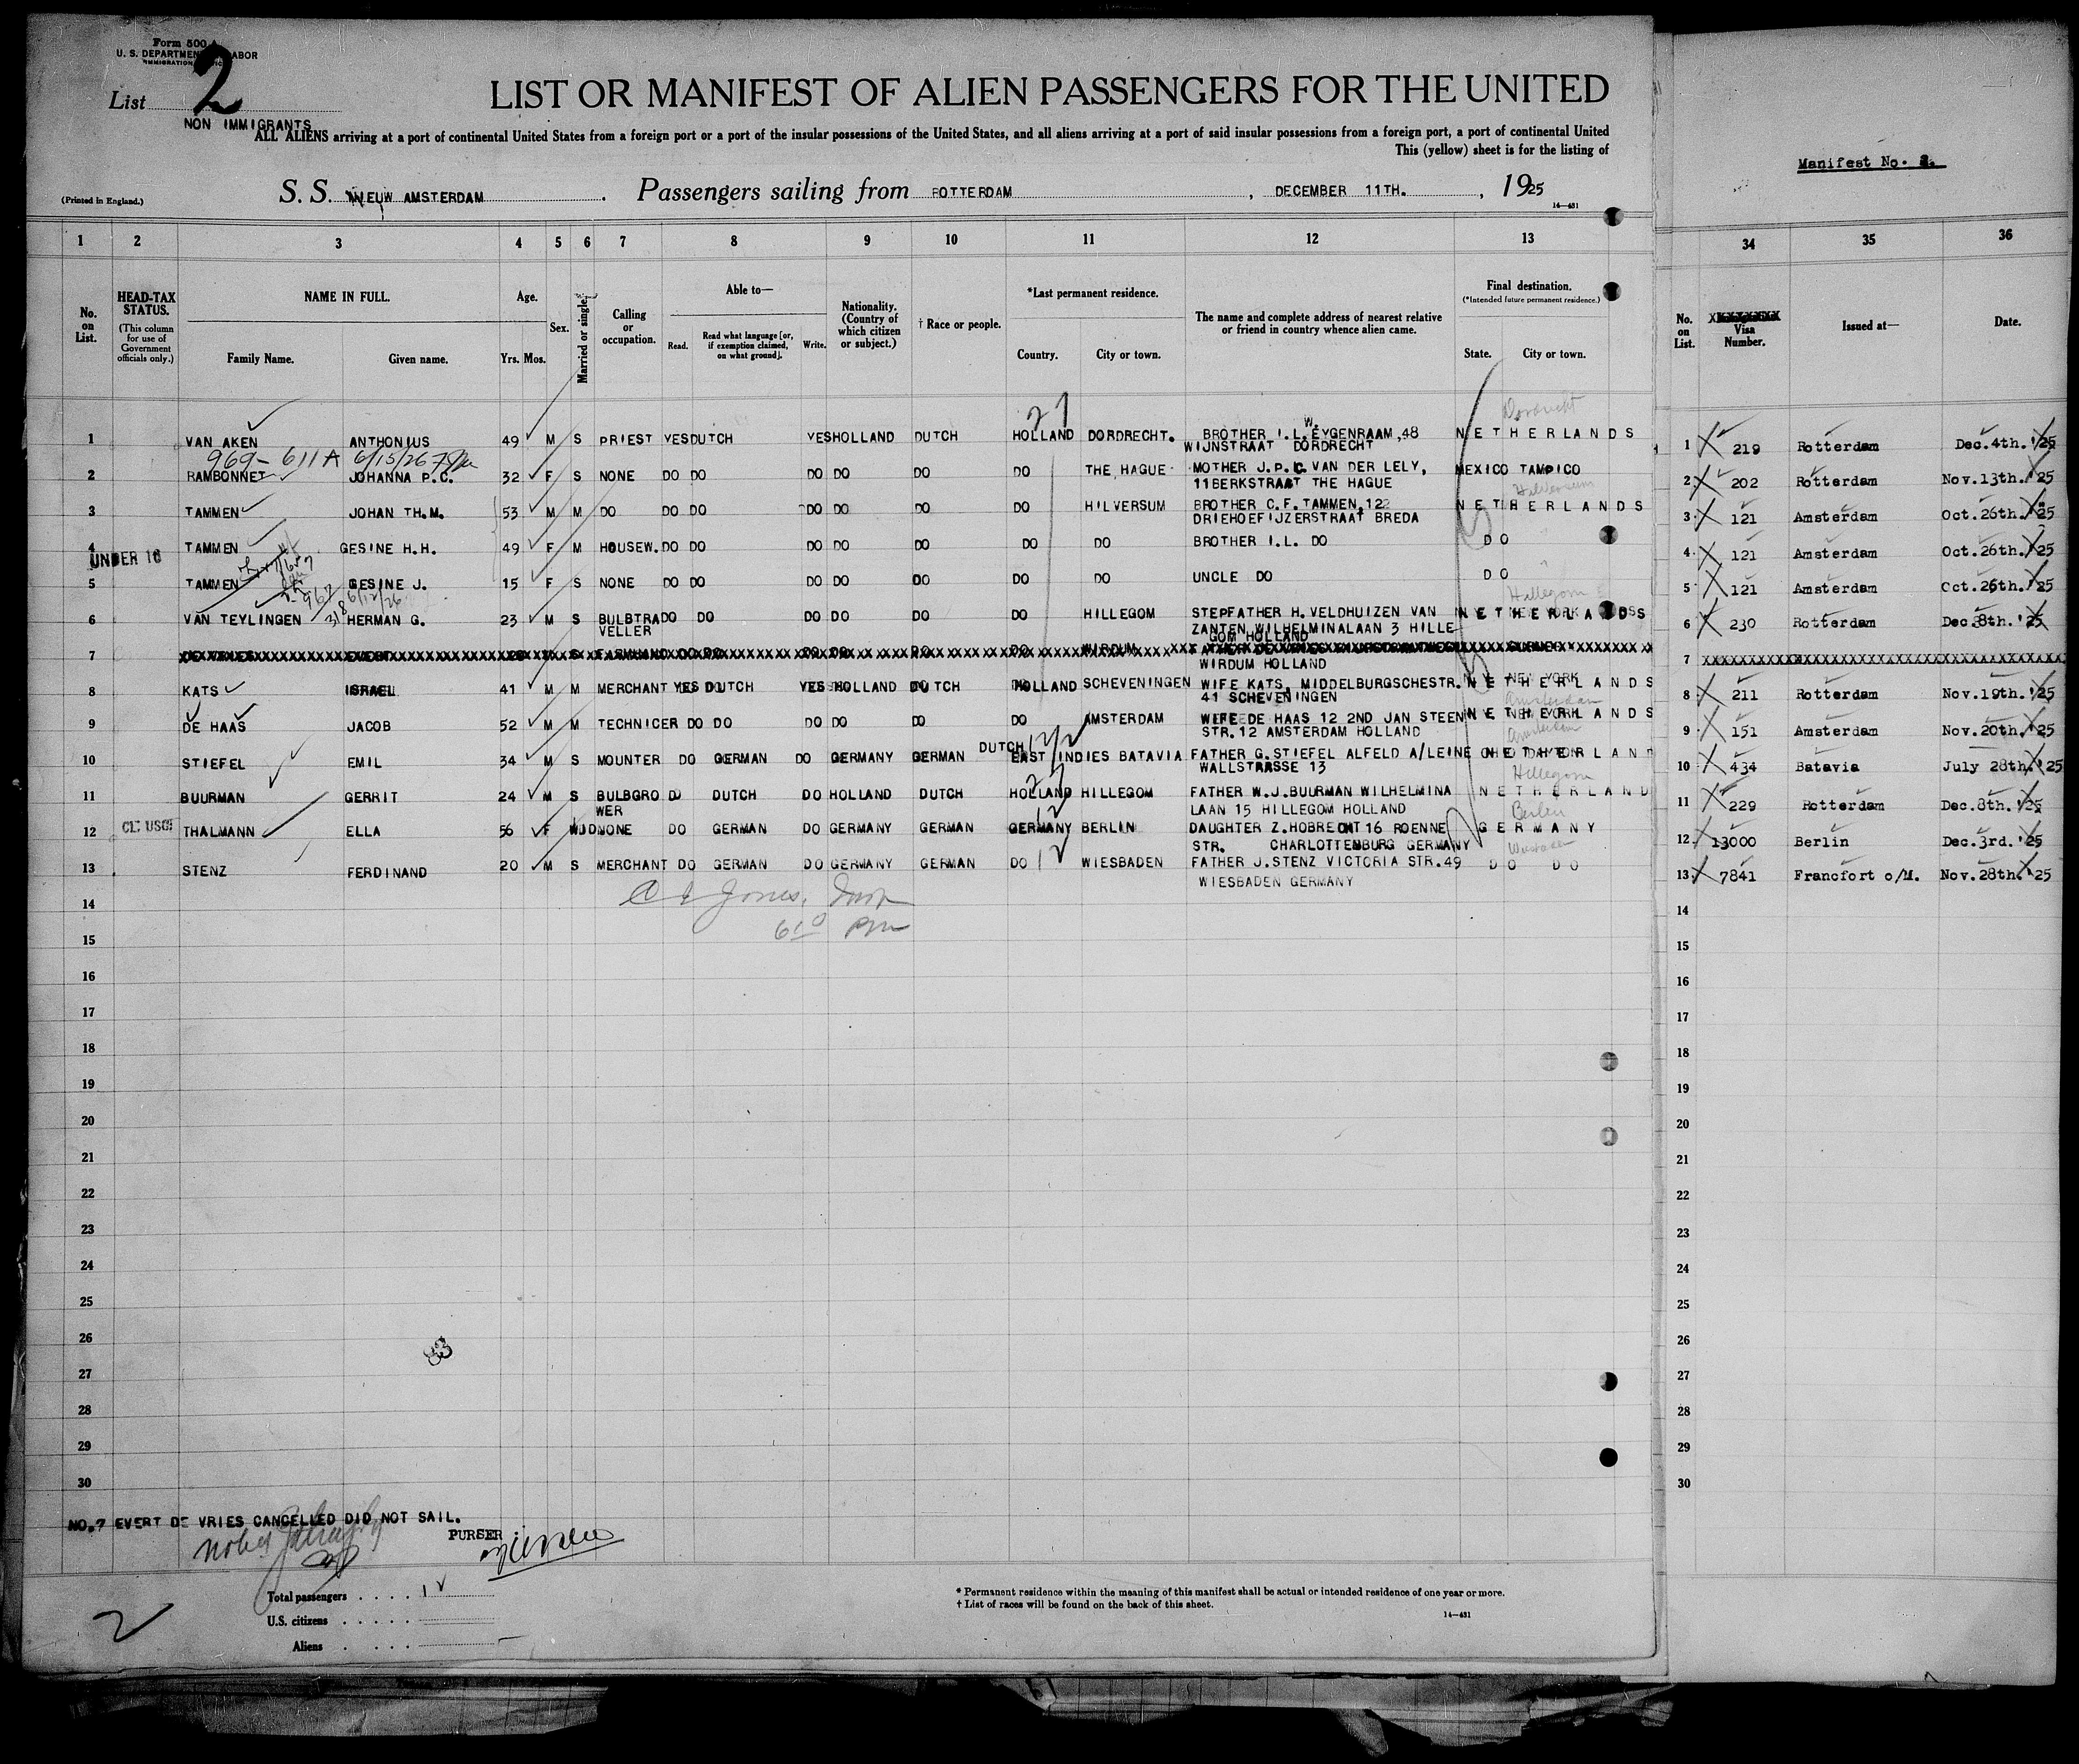 Form 500 A
U. S. DEPARTMENT LABOR
List 2
NON IMMIGRANTS
LIST OR MANIFEST OF ALIEN PASSENGERS FOR THE UNITED
ALL ALIENS arriving at a port of continental United States from a foreign port or a port of the insular possessions of the United States, and all aliens arriving at a port of said insular possessions from a foreign port, a port of continental United
This (yellow) sheet is for the listing of
Manifest No. 2.
(Printed in England.) S. S. NIEUW AMSTERDAM . Passengers sailing from ROTTERDAM , DECEMBER 11TH. , 1925
14—431
1 2 3 4 5 6 7 8 9 10 11 12 13 34 35 36
No. on List.
HEAD-TAX STATUS.
(This column for use of Government officials only.)
NAME IN FULL.
Family Name. Given name.
Age.
Yrs. Mos.
Sex.
Married or single.
Calling or occupation.
Able to—
Read. Read what language [or, if exemption claimed, on what ground]. Write.
Nationality. (Country of which citizen or subject.)
† Race or people.
*Last permanent residence.
Country. City or town.
The name and complete address of nearest relative or friend in country whence alien came.
Final destination.
(*Intended future permanent residence.)
State. City or town.
No. on List.
Visa Number.
Issued at—
Date.
27
Dordrecht
1 VAN AKEN ANTHONIUS 49 M S PRIEST YES DUTCH YES HOLLAND DUTCH HOLLAND DORDRECHT. BROTHER I.L.W. EYGENRAAM,48 NETHERLANDS 1 219 Rotterdam Dec.4th.'25
WIJNSTRAAT DORDRECHT
969- 611A 6/15/26
2 RAMBONNET JOHANNA P.C. 32 F S NONE DO DO DO DO DO DO THE HAGUE MOTHER J.P.C. VAN DER LELY, MEXICO TAMPICO 2 202 Rotterdam Nov.13th.'25
11BERKSTRAAT THE HAGUE
Hilversum
3 TAMMEN JOHAN TH.M. 53 M M DO DO DO DO DO DO DO HILVERSUM BROTHER C.F.TAMMEN,122 NETHERLANDS 3 121 Amsterdam Oct.26th.'25
DRIEHOEFIJZERSTRAAT BREDA
4 TAMMEN GESINE H.H. 49 F M HOUSEW. DO DO DO DO DO DO DO BROTHER I.L. DO DO 4 121 Amsterdam Oct.26th.'25
UNDER 16
5 TAMMEN GESINE J. 15 F S NONE DO DO DO DO DO DO DO UNCLE DO DO 5 121 Amsterdam Oct.26th.'25
Hillegom
6 VAN TEYLINGEN HERMAN G. 23 M S BULBTRA DO DO DO DO DO DO HILLEGOM STEPFATHER H.VELDHUIZEN VAN NETHERLANDS 6 230 Rotterdam Dec.8th.'25
VELLER ZANTEN WILHELMINALAAN 3 HILLE
GOM HOLLAND
7 7
WIRDUM HOLLAND
8 KATS ISRAEL 41 M M MERCHANT YES DUTCH YES HOLLAND DUTCH HOLLAND SCHEVENINGEN WIFE KATS, MIDDELBURGSCHESTR. NETHERLANDS 8 211 Rotterdam Nov.19th.'25
41 SCHEVENINGEN
Amsterdam
9 DE HAAS JACOB 52 M M TECHNICER DO DO DO DO DO DO AMSTERDAM WIFE DE HAAS 12 2ND JAN STEEN NETHERLANDS 9 151 Amsterdam Nov.20th.'25
STR.12 AMSTERDAM HOLLAND
Amsterdam
10 STIEFEL EMIL 34 M S MOUNTER DO GERMAN DO GERMANY GERMAN DUTCH EAST INDIES BATAVIA FATHER G.STIEFEL ALFELD A/LEINE NETHERLAND 10 434 Batavia July 28th.'25
WALLSTRASSE 13
Hillegom
11 BUURMAN GERRIT 24 M S BULBGRO DO DUTCH DO HOLLAND DUTCH HOLLAND HILLEGOM FATHER W.J.BUURMAN WILHELMINA NETHERLAND 11 229 Rotterdam Dec.8th.'25
WER LAAN 15 HILLEGOM HOLLAND
Berlin
12 THALMANN ELLA 56 F WID NONE DO GERMAN DO GERMANY GERMAN GERMANY BERLIN DAUGHTER Z.HOBRECHT 16 ROENNE GERMANY 12 13000 Berlin Dec.3rd.'25
STR. CHARLOTTENBURG GERMANY
Wiesbaden
13 STENZ FERDINAND 20 M S MERCHANT DO GERMAN DO GERMANY GERMAN DO WIESBADEN FATHER J.STENZ VICTORIA STR.49 DO DO 13 7841 Francfort o/M. Nov.28th.'25
WIESBADEN GERMANY
14 14
C E Jones, Insp
15 610 PM 15
16 16
17 17
18 18
19 19
20 20
21 21
22 22
23 23
24 24
25 25
26 26
27 27
28 28
29 29
30 30
NO.7 EVERT DE VRIES CANCELLED DID NOT SAIL.
PURSER
Total passengers
U.S. citizens
Aliens
2
* Permanent residence within the meaning of this manifest shall be actual or intended residence of one year or more.
† List of races will be found on the back of this sheet.
14—431